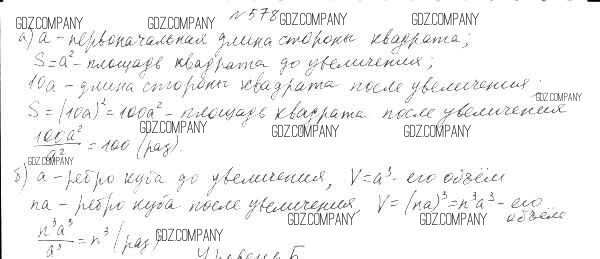 №578
GDZ.COMPANY GDZ.COMPANY GDZ.COMPANY
а) a - первоначальная длина стороны квадрата;
S = a² - площадь квадрата до увеличения;
10a - длина стороны квадрата после увеличения.
GDZ.COMPANY
S = (10a)² = 100a² - площадь квадрата после увеличения
GDZ.COMPANY GDZ.COMPANY GDZ.COMPANY
100a²/a² = 100 (раз).
GDZ.COMPANY
б) a - ребро куба до увеличения, V = a³ - его объём
na - ребро куба после увеличения, V = (na)³ = n³a³ - его объём
GDZ.COMPANY GDZ.COMPANY
n³a³/a³ = n³ (раз)
GDZ.COMPANY
Уровень Б